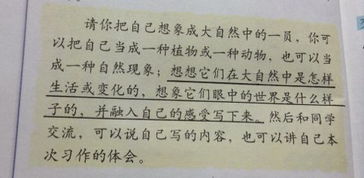 请你把自己想象成大自然中的一员，你可
以把自己当成一种植物或一种动物，也可以当
成一种自然现象；想想它们在大自然中是怎样
生活或变化的，想象它们眼中的世界是什么样
子的，并融入自己的感受写下来。然后和同学
交流，可以说自己写的内容，也可以讲自己本
次习作的体会。